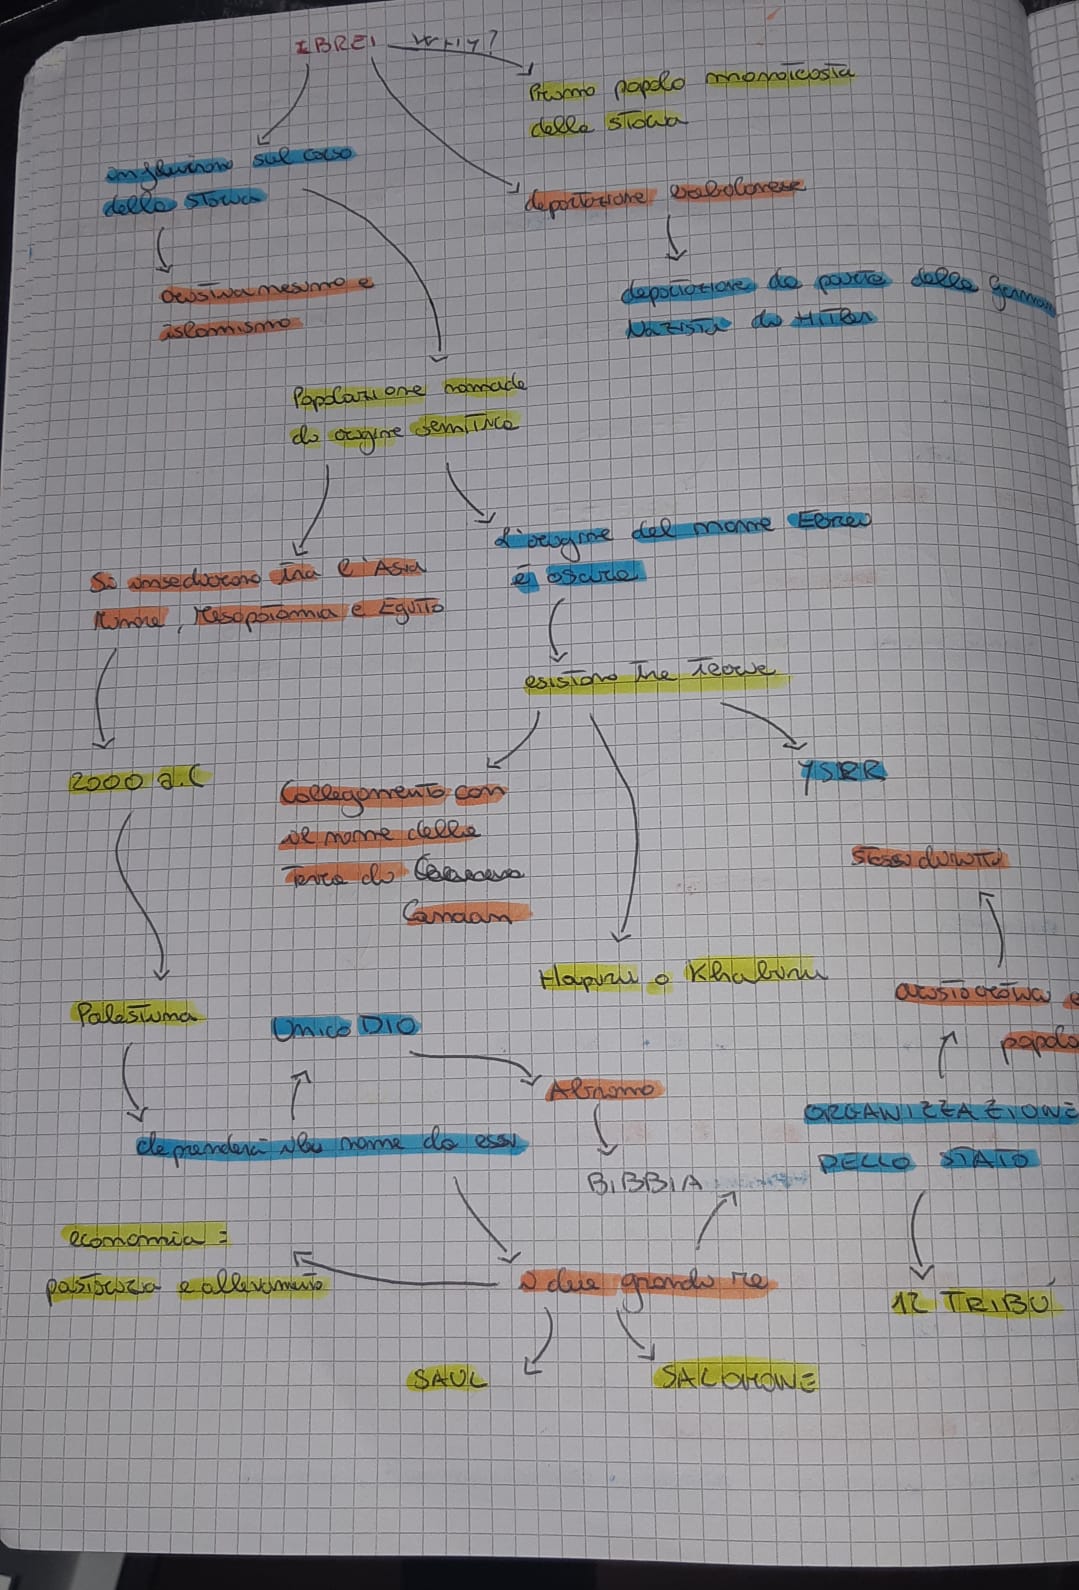 EBREI Why?
Primo popolo monoteista
della storia
influirono sul corso
della storia
deportazione babilonese
cristianesimo e
islamismo
deportazione da parte della German
Nazista di Hitler
Popolazione nomade
di origine semitica
L'origine del nome Ebreo
è oscura
Si insediarono tra l'Asia
Minore, Mesopotamia e Egitto
esistono tre teorie
2000 a.C
YSRR
Collegamento con
il nome della
Terra di
Canaan
stessi diritti
Hapiru o Khabiru
aristocrazia e
popolo
Palestina
Unico DIO
Abramo
ORGANIZZAZIONE
DELLO STATO
che prenderà il nome da essi
BIBBIA
economia =
pastorizia e allevamento
i due grandi re
12 TRIBÚ
SAUL
SALOMONE